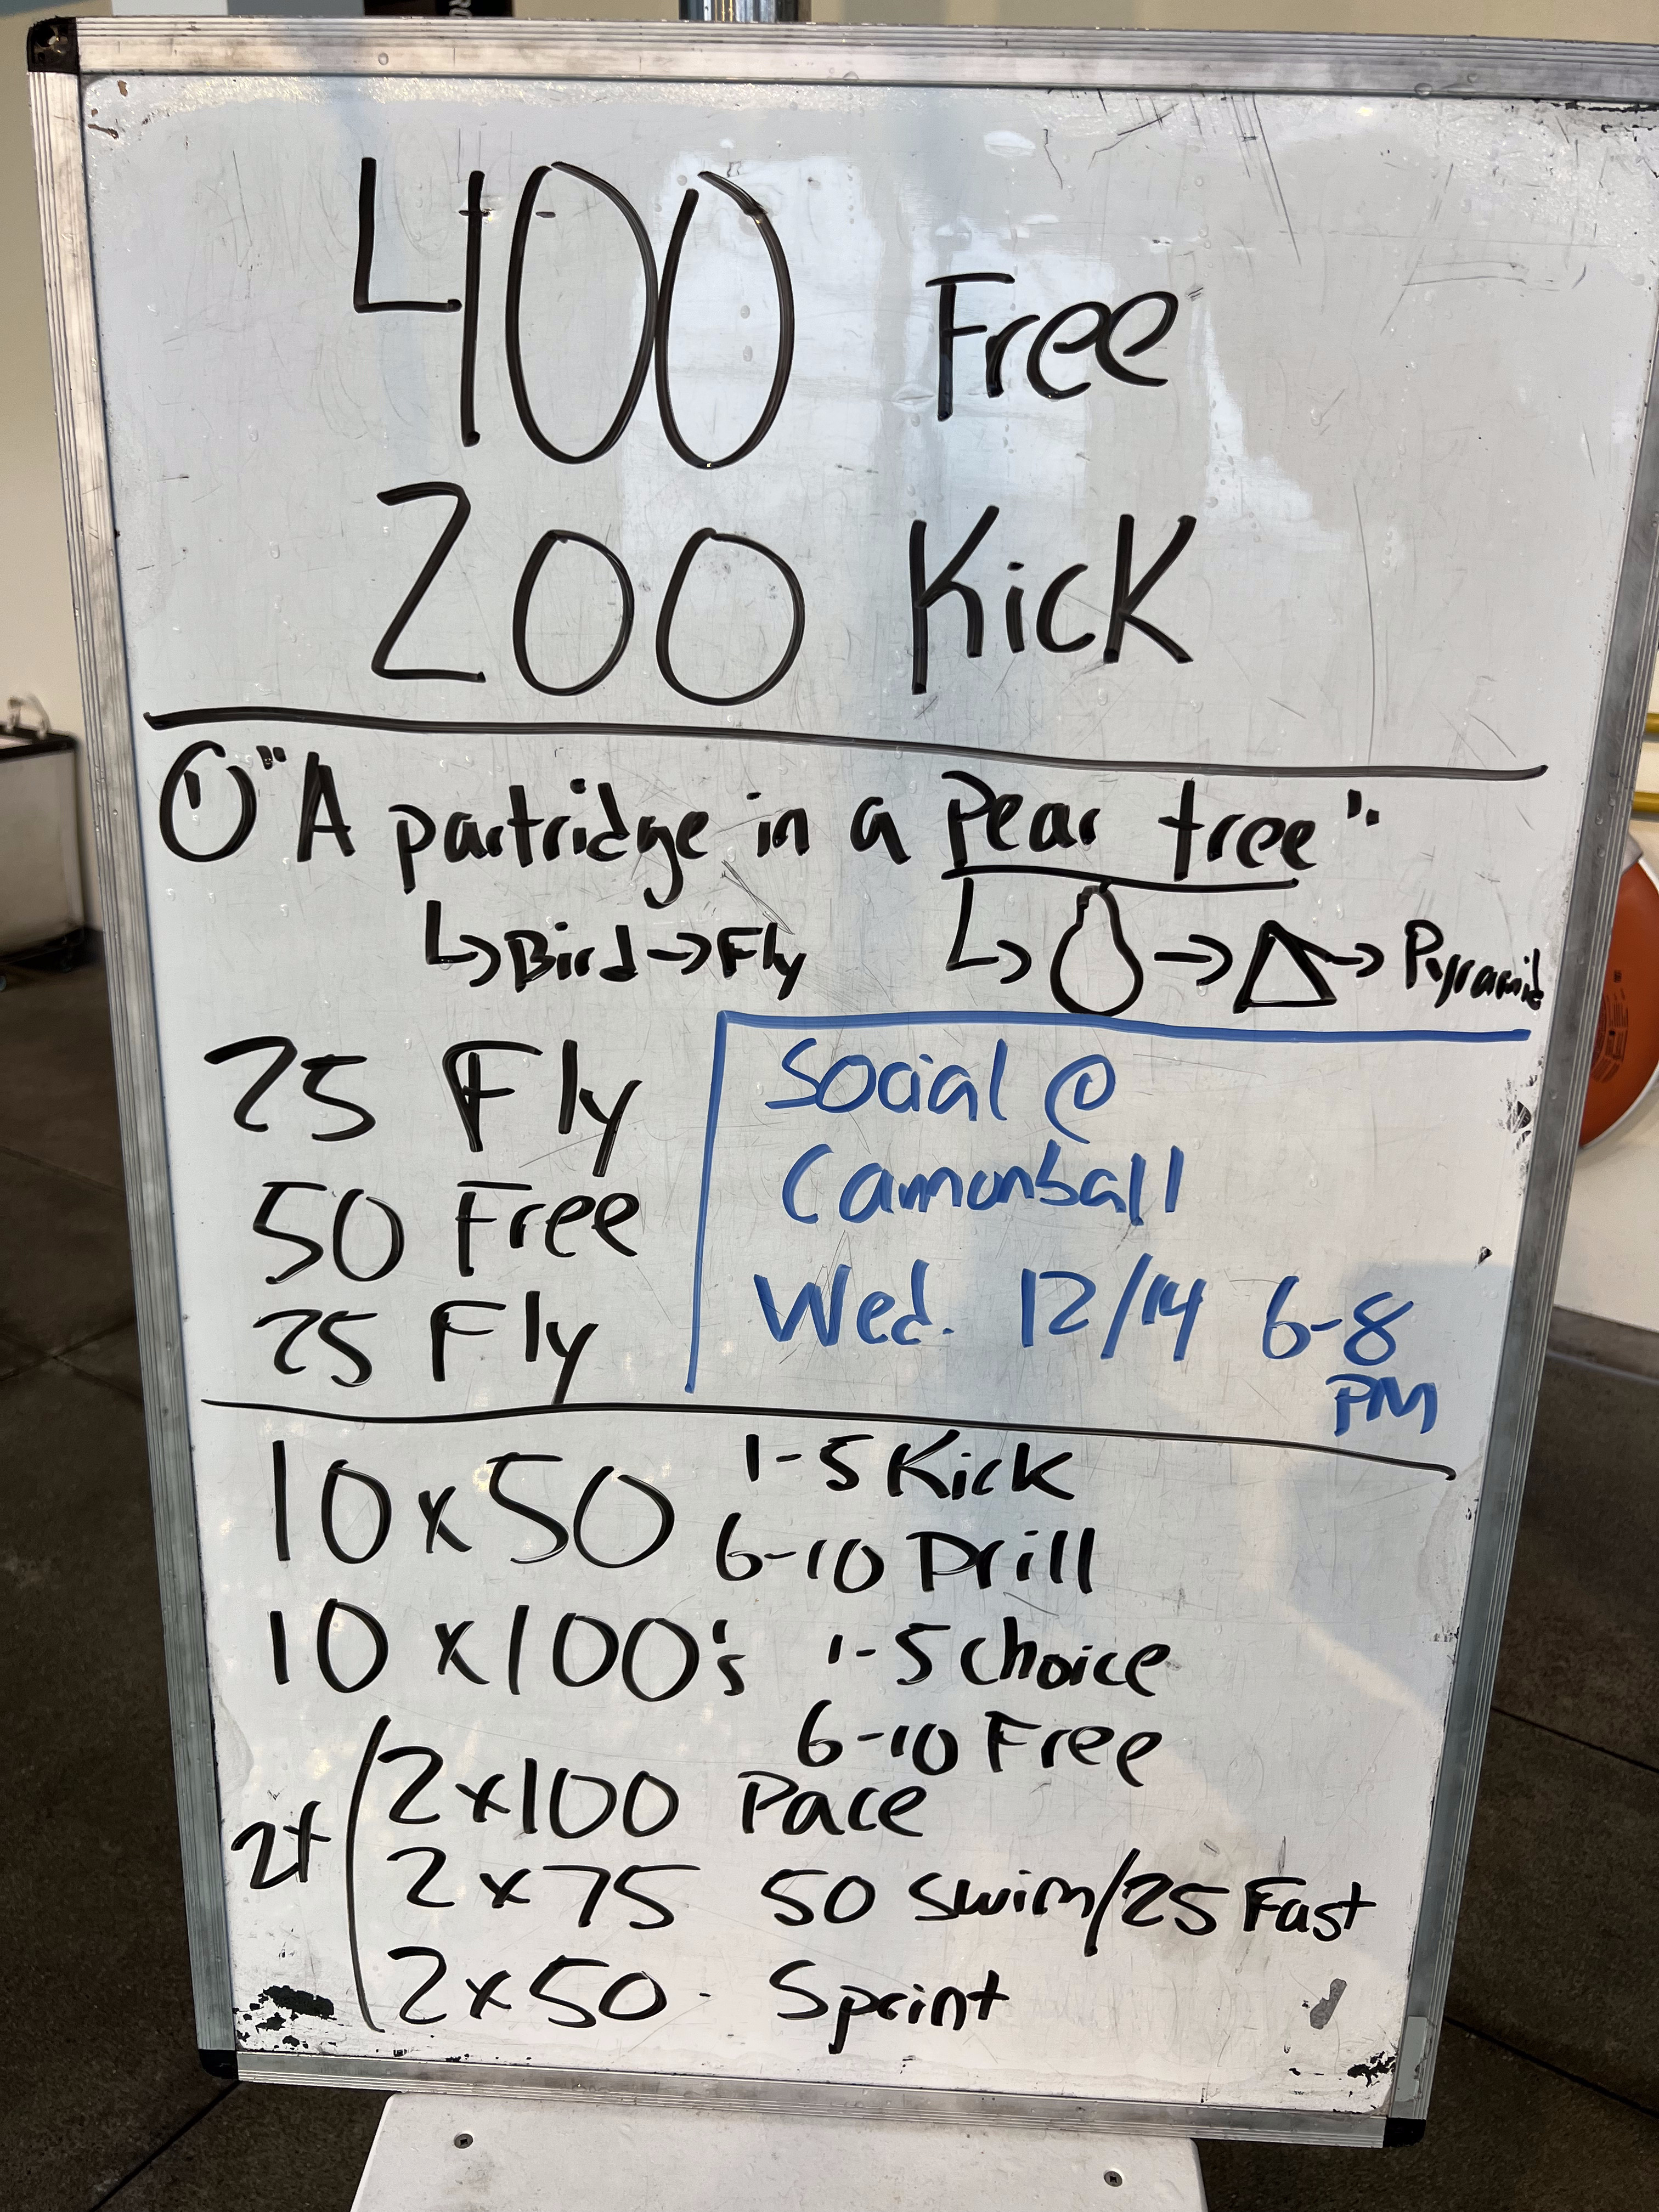 400 Free
200 Kick
① "A partridge in a Pear tree"
↳ Bird → Fly ↳ → △ → Pyramid
25 Fly
50 Free
25 Fly
Social @
Cannonball
Wed. 12/14 6-8
PM
10 x 50 1-5 Kick
6-10 Drill
10 x 100's 1-5 choice
6-10 Free
2x
2 x 100 Pace
2 x 75 50 Swim/25 Fast
2 x 50 Sprint